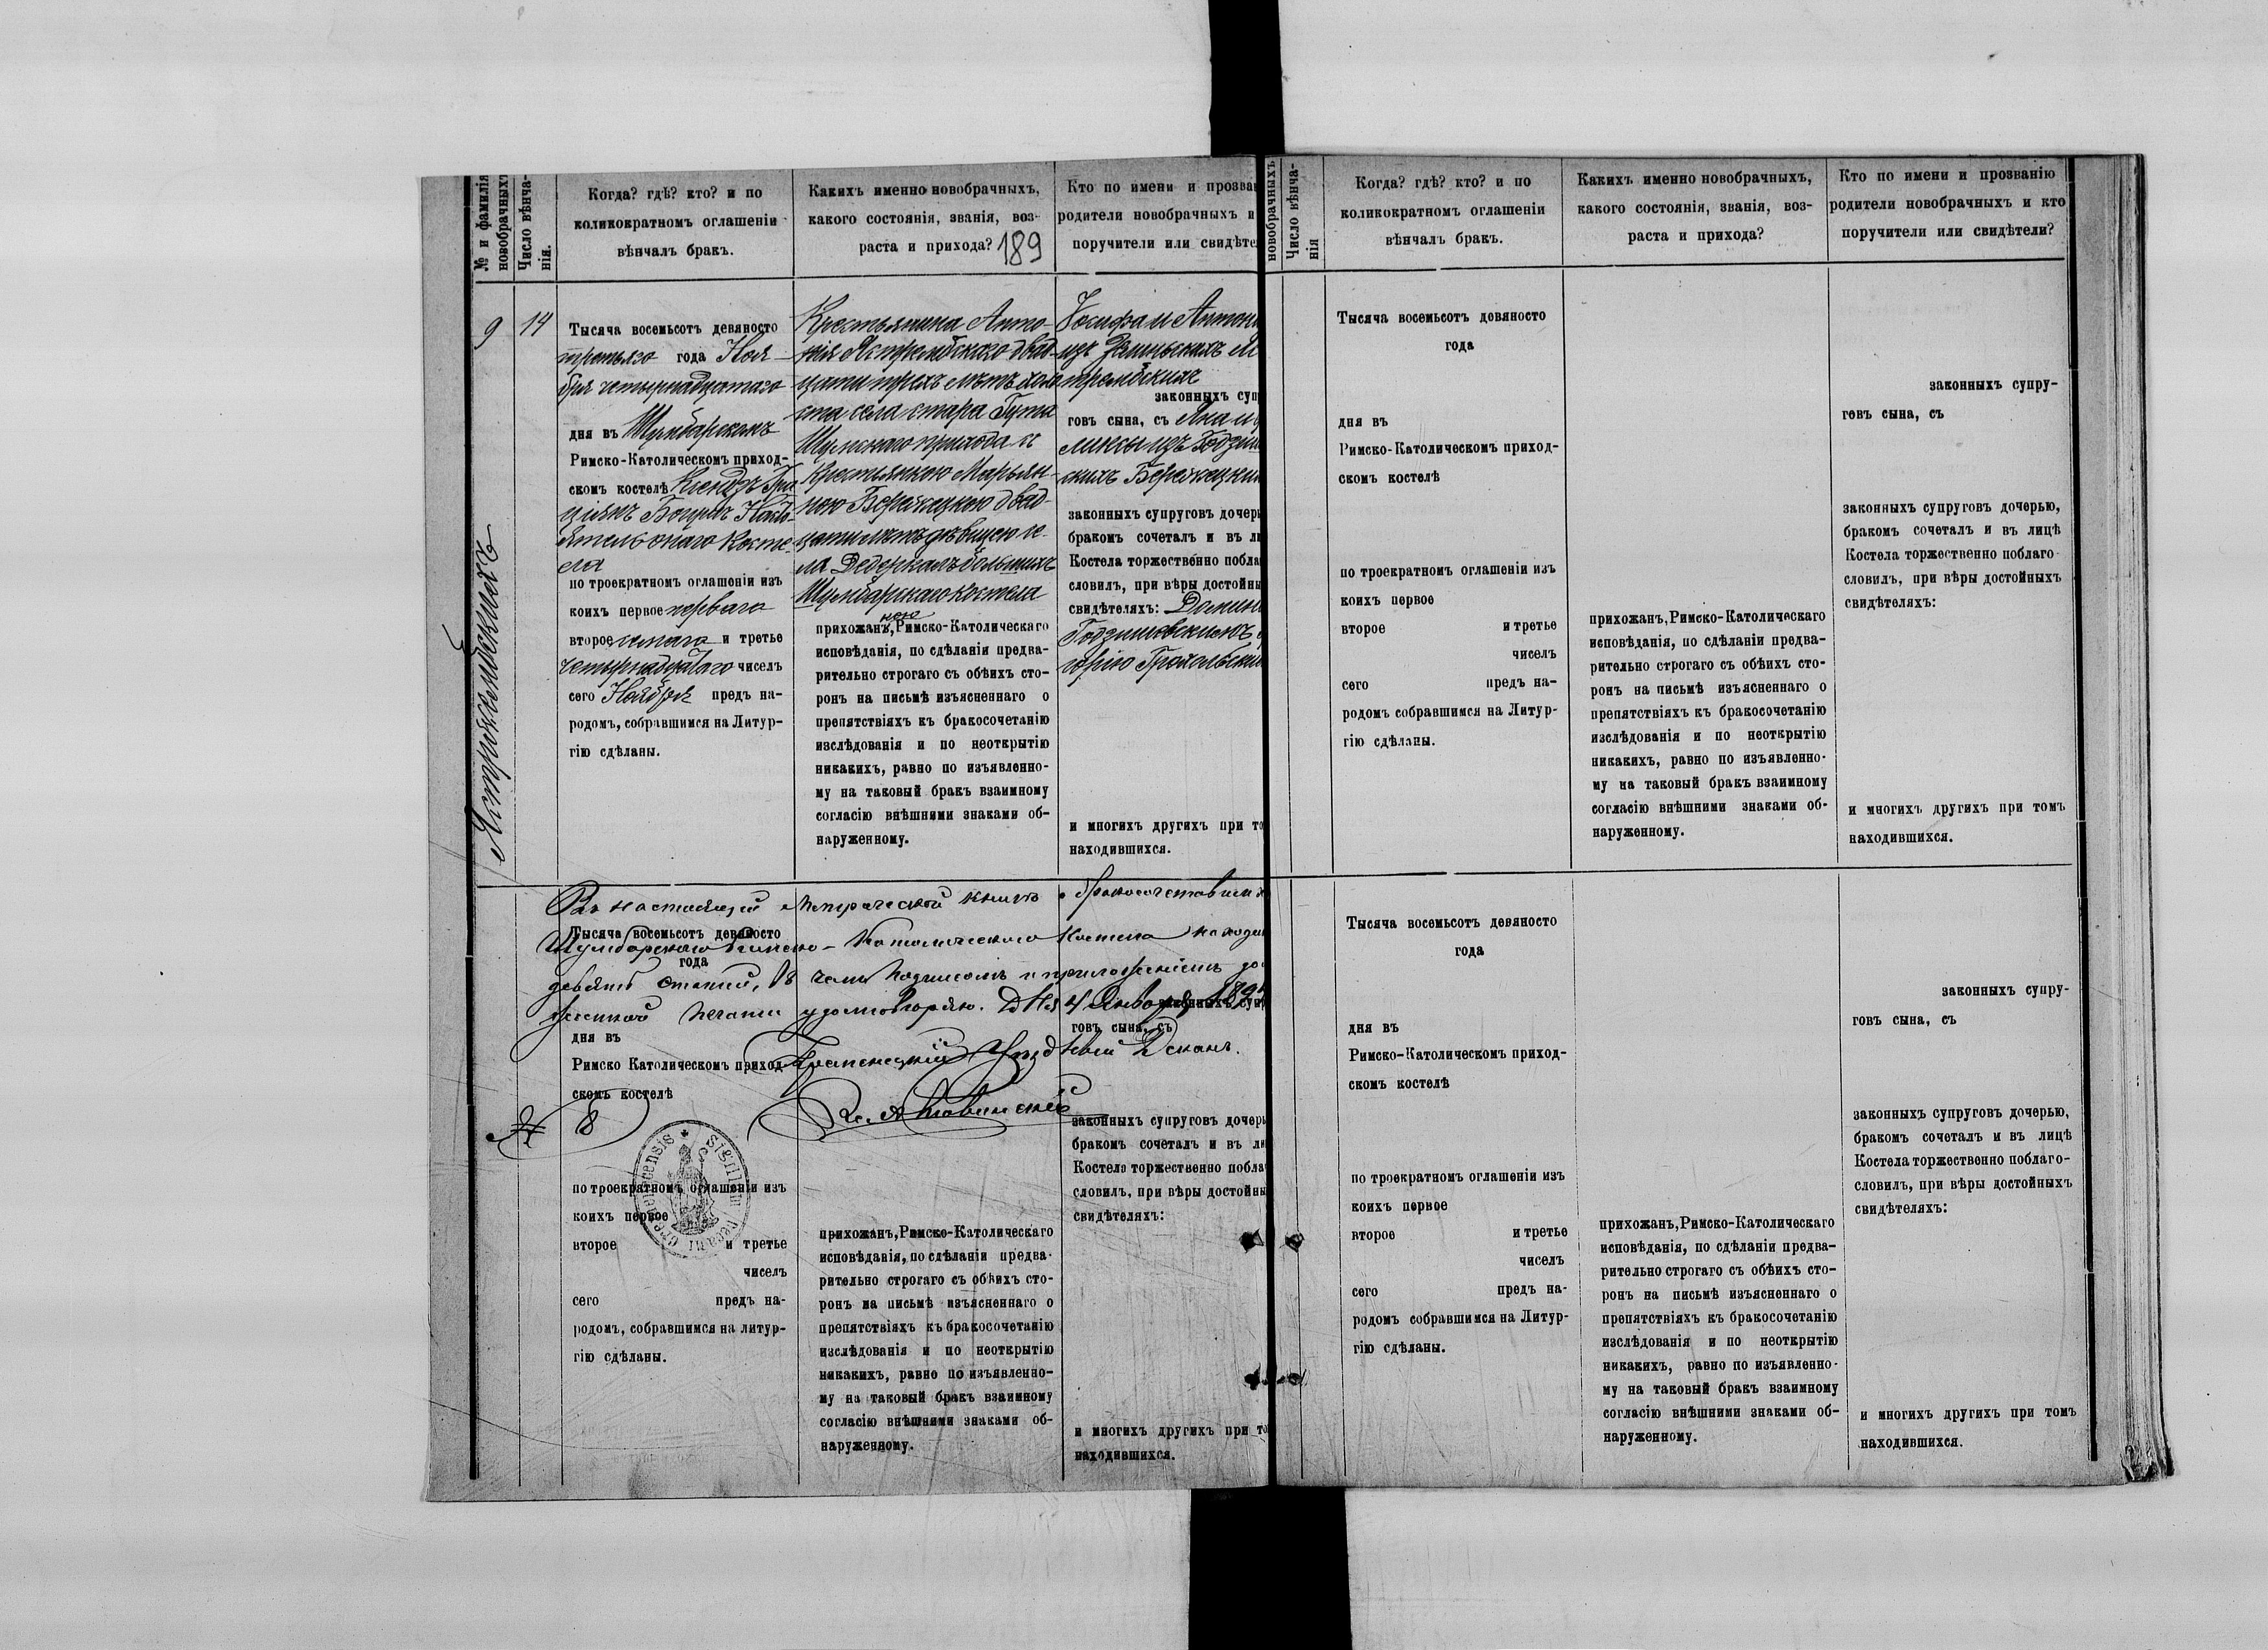 № и фамилія новобрачныхъ
Число вѣнча-
нія.
Когда? гдѣ? кто? и по
коликократномъ оглашеніи
вѣнчалъ бракъ.
Какихъ именно новобрачныхъ,
какого состоянія, званія, воз-
раста и прихода?
189
Кто по имени и прозва
родители новобрачныхъ и
поручители или свидѣте
9
14
Ястрембскихъ
Тысяча восемьсотъ девяносто
третьяго года Ноя-
бря четырнадцатаго
дня въ Шумбарскомъ
Римско-Католическомъ приход-
скомъ костелѣ Ксендзъ
Насто-
ятель онаго Косте-
ла
по троекратномъ оглашеніи изъ
коихъ первое перваго
второе и третье
четырнадцатаго чиселъ
сего Ноября предъ на-
родомъ, собравшимся на Литур-
гію сдѣланы.
Крестьянина Анто-
нія Ястрембскаго двад-
цати трехъ лѣтъ холо
ста села стара Гута
Шумскаго прихода съ
Крестьянкою Марьян-
ною Берейецкою двад-
цати лѣтъ дѣвицею се-
ла Дедеркалъ большихъ
Шумбарскаго костела
ною
прихожанъ, Римско-Католическаго
исповѣданія, по сдѣланіи предва-
рительно строгаго съ обѣихъ сто-
ронъ на письмѣ изъясненнаго о
препятствіяхъ къ бракосочетанію
изслѣдованія и по неоткрытію
никакихъ, равно по изъявленно-
му на таковый бракъ взаимному
согласію внѣшними знаками об-
наруженному.
Іосифа и Антони
изъ
трембскихъ
законныхъ суп
говъ сына, съ Яна и
изъ
скихъ
законныхъ супруговъ дочер
бракомъ сочеталъ и въ ли
Костела торжественно побла
словилъ, при вѣры достойны
свидѣтеляхъ: Домини
и многихъ другихъ при то
находившихся.
Въ настоящей метрической книгѣ о бракосочетавшихъ
Шумбарскаго Римско-Католическаго Костела находи
девять статей, въ чемъ подписомъ и приложеніемъ до
жностной печати удостовѣряю. Дня 4 Января 189
Кременецкій Уѣздный Деканъ.
№ 8
Sigillum Decani Cremenecensis
Тысяча восемьсотъ девяносто
года
дня въ
Римско Католическомъ приход-
скомъ костелѣ
по троекратномъ оглашеніи изъ
коихъ первое
второе и третье
чиселъ
сего предъ на-
родомъ, собравшимся на литур-
гію сдѣланы.
прихожанъ, Римско-Католическаго
исповѣданія, по сдѣланіи предва-
рительно строгаго съ обѣихъ сто-
ронъ на письмѣ изъясненнаго о
препятствіяхъ къ бракосочетанію
изслѣдованія и по неоткрытію
никакихъ, равно по изъявленно-
му на таковый бракъ взаимному
согласію внѣшними знаками об-
наруженному.
законныхъ суп
говъ сына, съ
законныхъ супруговъ дочерь
бракомъ сочеталъ и въ ли
Костела торжественно побла
словилъ, при вѣры достойны
свидѣтеляхъ:
и многихъ другихъ при то
находившихся.
новобрачныхъ
Число вѣнча-
нія
Когда? гдѣ? кто? и по
коликократномъ оглашеніи
вѣнчалъ бракъ.
Какихъ именно новобрачныхъ,
какого состоянія, званія, воз-
раста и прихода?
Кто по имени и прозванію
родители новобрачныхъ и кто
поручители или свидѣтели?
Тысяча восемьсотъ девяносто
года
дня въ
Римско-Католическомъ приход-
скомъ костелѣ
по троекратномъ оглашеніи изъ
коихъ первое
второе и третье
чиселъ
сего предъ на-
родомъ собравшимся на Литур-
гію сдѣланы.
прихожанъ, Римско-Католическаго
исповѣданія, по сдѣланіи предва-
рительно строгаго съ обѣихъ сто-
ронъ на письмѣ изъясненнаго о
препятствіяхъ къ бракосочетанію
изслѣдованія и по неоткрытію
никакихъ, равно по изъявленно-
му на таковый бракъ взаимному
согласію внѣшними знаками об-
наруженному.
законныхъ супру-
говъ сына, съ
законныхъ супруговъ дочерью,
бракомъ сочеталъ и въ лицѣ
Костела торжественно поблаго-
словилъ, при вѣры достойныхъ
свидѣтеляхъ:
и многихъ другихъ при томъ
находившихся.
Тысяча восемьсотъ девяносто
года
дня въ
Римско-Католическомъ приход-
скомъ костелѣ
по троекратномъ оглашеніи изъ
коихъ первое
второе и третье
чиселъ
сего предъ на-
родомъ собравшимся на Литур-
гію сдѣланы.
прихожанъ, Римско-Католическаго
исповѣданія, по сдѣланіи предва-
рительно строгаго съ обѣихъ сто-
ронъ на письмѣ изъясненнаго о
препятствіяхъ къ бракосочетанію
изслѣдованія и по неоткрытію
никакихъ, равно по изъявленно-
му на таковый бракъ взаимному
согласію внѣшними знаками об-
наруженному.
законныхъ супру-
говъ сына, съ
законныхъ супруговъ дочерью,
бракомъ сочеталъ и въ лицѣ
Костела торжественно поблаго-
словилъ, при вѣры достойныхъ
свидѣтеляхъ:
и многихъ другихъ при томъ
находившихся.